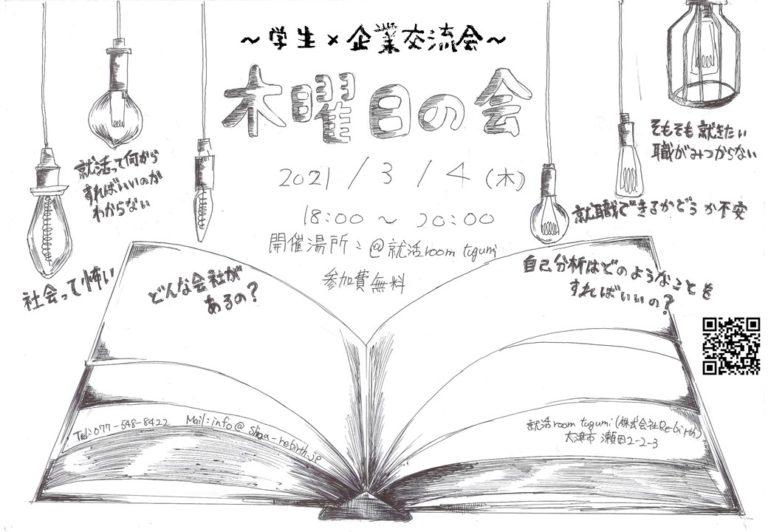 ~学生×企業交流会~
木曜日の会
2021/3/4(木)
18:00~20:00
開催場所:@就活room tugumi
参加費無料
就活って何から
すればいいのか
わからない
社会って怖い
どんな会社が
あるの?
そもそも就きたい
職がみつからない
就職できるかどうか不安
自己分析はどのようなことを
すればいいの?
Tel:077-548-8422 Mail:info@
就活room tugumi(株式会社Rebirth)
大津市 瀬田2-2-3